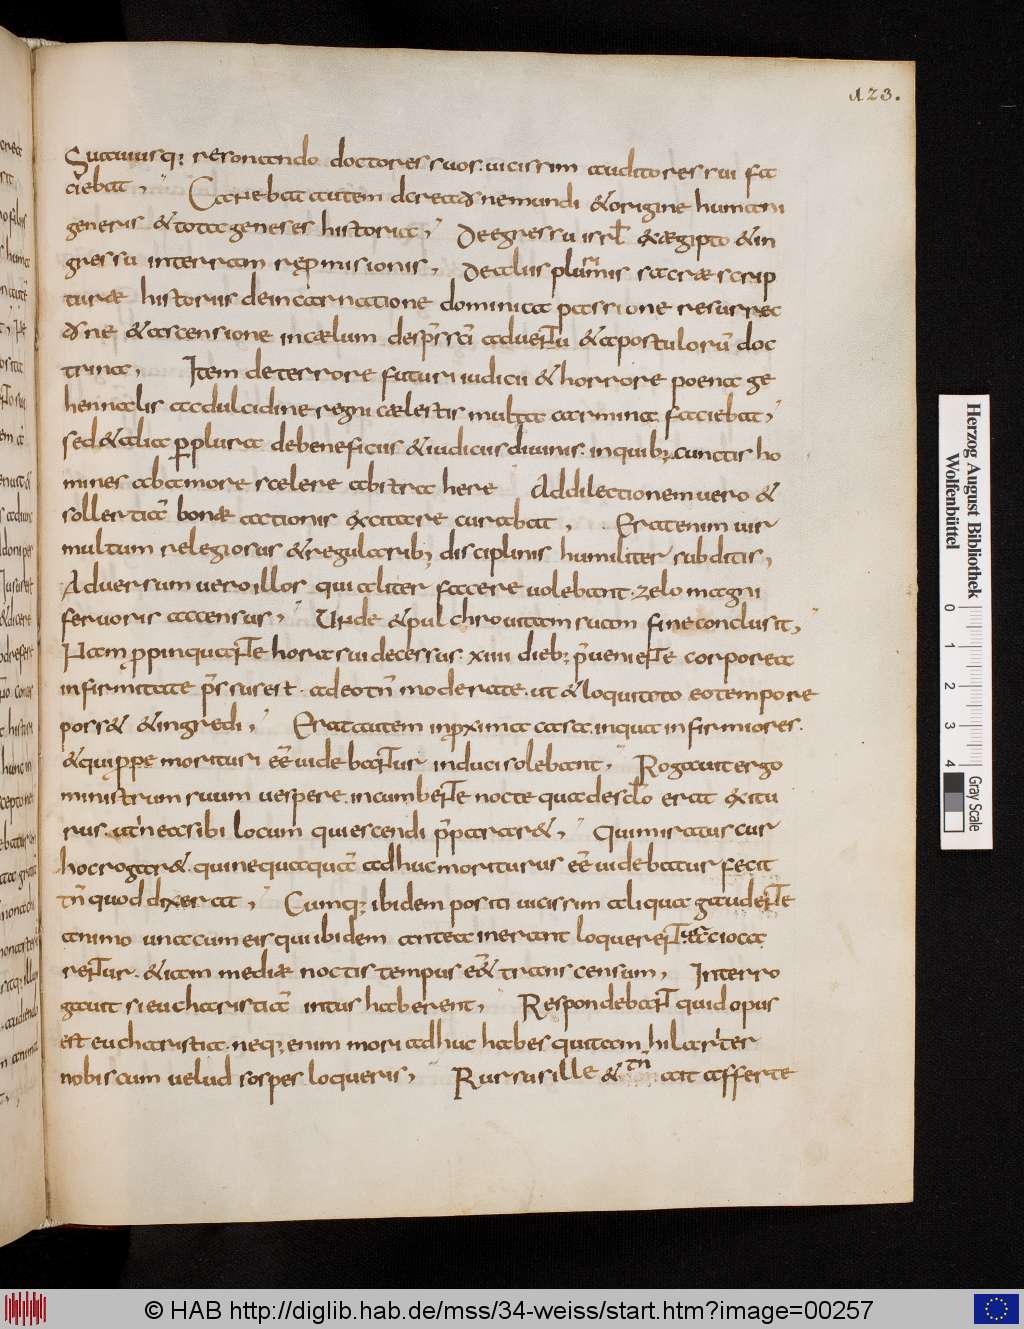 123.
Suauiusq; resonando doctores suos. uicissim auditores sui fa
ciebat, Canebat autem de creatione mundi & origine humani
generis & tota geneseos historia, De egressu isrł ex ægipto & in
gressu in terram repromissionis, de aliis plurimis sacræ scrip
turæ historiis de incarnatione dominica passione resurrec
tione & ascensione in cælum de sp̄s sc̄i aduentu & apostolorū doc
trina, Item de terrore futuri iudicii & horrore poenæ ge
hennalis ac dulcidine regni cælestis multa carmina faciebat,
sed & alia perplura de beneficiis & iudiciis diuinis. in quib; cunctis ho
mines ab amore scelere abstrahere Ad dilectionem uero &
sollertiā bonæ actionis excitare curabat, Erat enim uir
multum relegiosus & regularib; disciplinis humiliter subditis,
Aduersum uero illos qui aliter facere uolebant. zelo magni
feruoris accensus, Unde & pulchro uitam suam fine conclusit,
Nam propinquante hora sui decessus. xiiii dieb; p̄ueniente corporea
infirmitate p̄ssus est. adeo tn̄ moderate. ut & loqui toto eo tempore
poss& & ingredi, Erat autem in proxima casa. in qua infirmiores.
& qui prope morituri eē uidebantur induci solebant, Rogauit ergo
ministrum suum uespere. incumbente nocte qua de sclo erat exitu
rus. ut in ea sibi locum quiescendi p̄parar&, Qui miratus cur
hoc rogar&. qui nequaquā adhuc moriturus eē uidebatur fecit
tn̄ quod dixerat, Cumq; ibidem positi uicissim aliqua gaudente
animo una cum eis qui ibidem antea inerant loquerent. ac ioca
rentur. & iam mediæ noctis tempus eēt transcensum, Interro
gauit si eucharistiā intus haberent, Respondebant quid opus
est eucharistia. neq; enim mori adhuc habes qui tam hilariter
nobiscum uelud sospes loqueris, Rursus ille & tn̄ ait afferte
Herzog August Bibliothek
Wolfenbüttel
0 1 2 3 4
Gray Scale
© HAB http://diglib.hab.de/mss/34-weiss/start.htm?image=00257